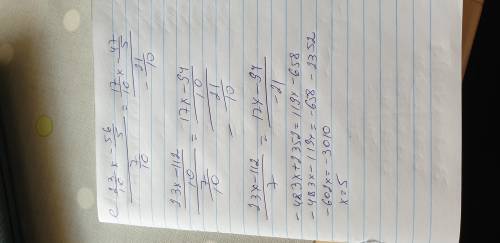 c) (23/10 x - 56/5) / (7/10) = (17/10 x - 47/5) / (- 21/10)
((23x-112)/10) / (7/10) = ((17x-94)/10) / (- 21/10)
(23x-112)/7 = (17x-94)/-21
-483x+2352=119x-658
-483x-119x=-658-2352
-602x=-3010
x=5